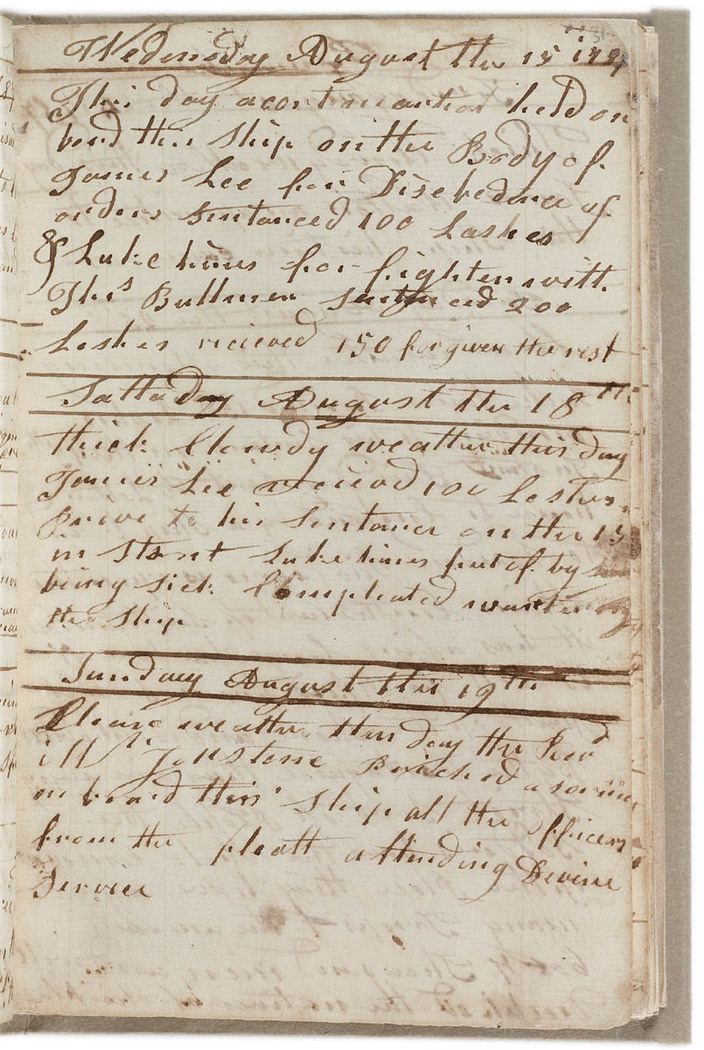 Wedensday August the 15 179
This day acort martial held on
bord this ship on the Body of
James Lee for Disebedence of
orders sentanced 100 Lashes
& Luke hines for fighten with
Thos Bullmen sentenced 200
Lashes recieved 150 forgiven the rest
Satterday August the 18th
thick Clowdy weather this day
James Lee recieved 100 Lashes
Prive to his sentance on the 15
in stant Luke hines put of by
being sick Compleated
the ship
Sunday August the 19th
Pleasant weather this day the Revd
Mr Johnstone Preiched a
on board this ship all the officers
from the fleatt attending Devine
Service